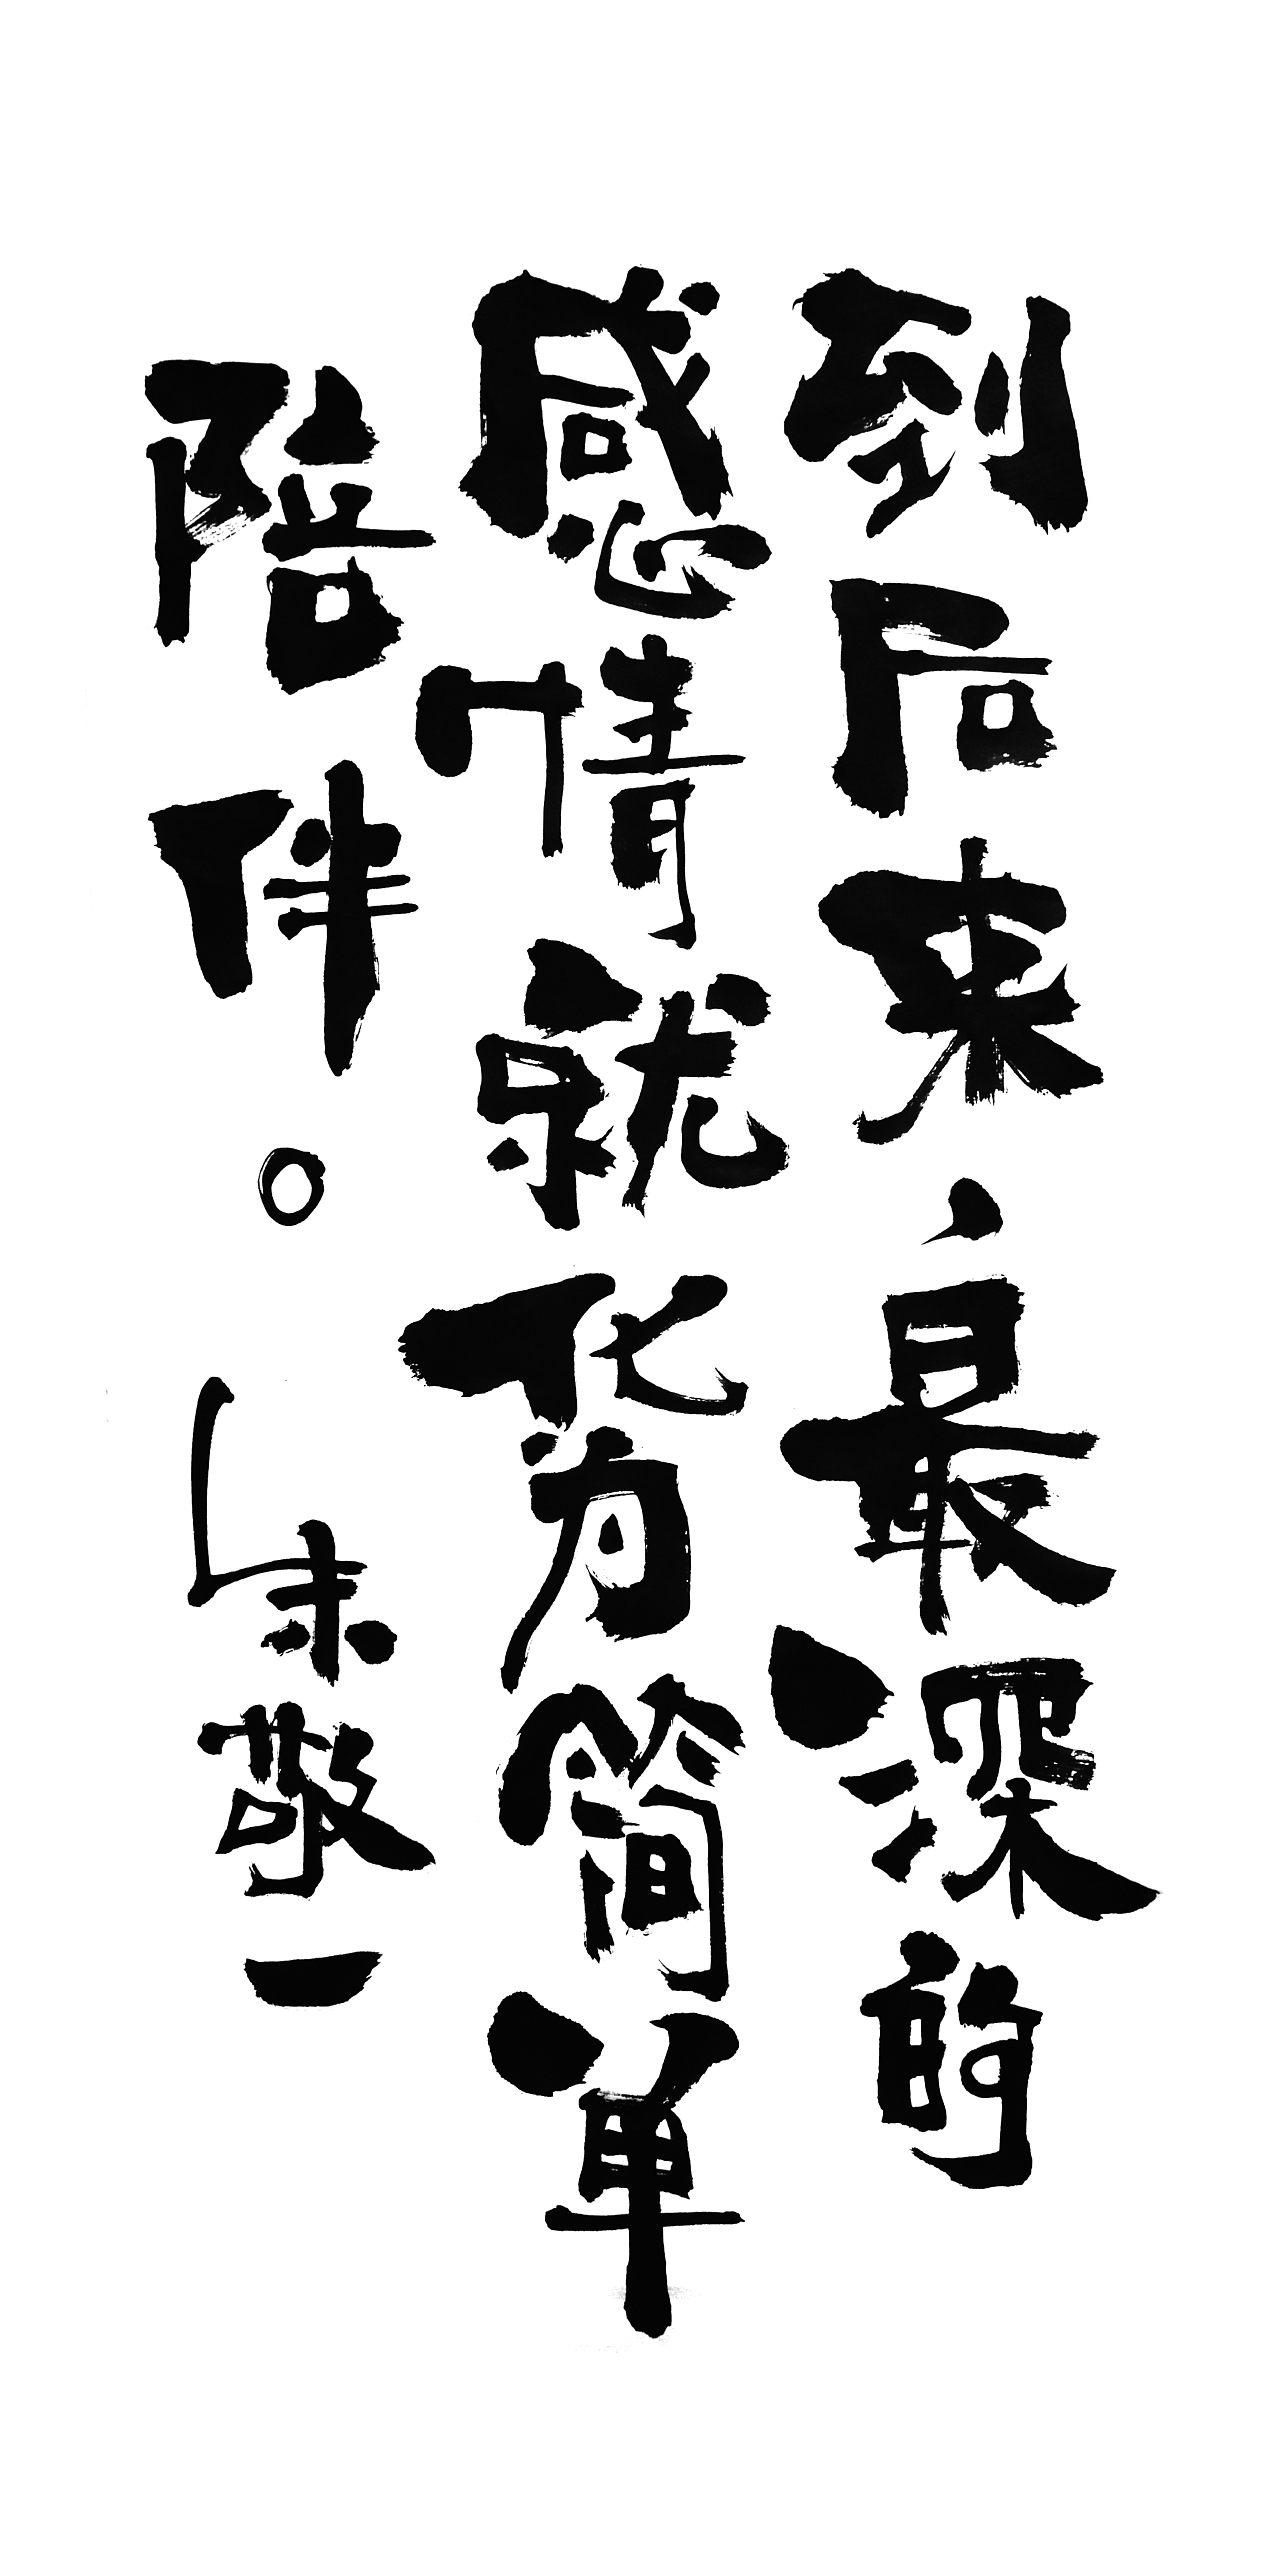 到后来，最深的
感情就化为简单
陪伴。——朱敬一